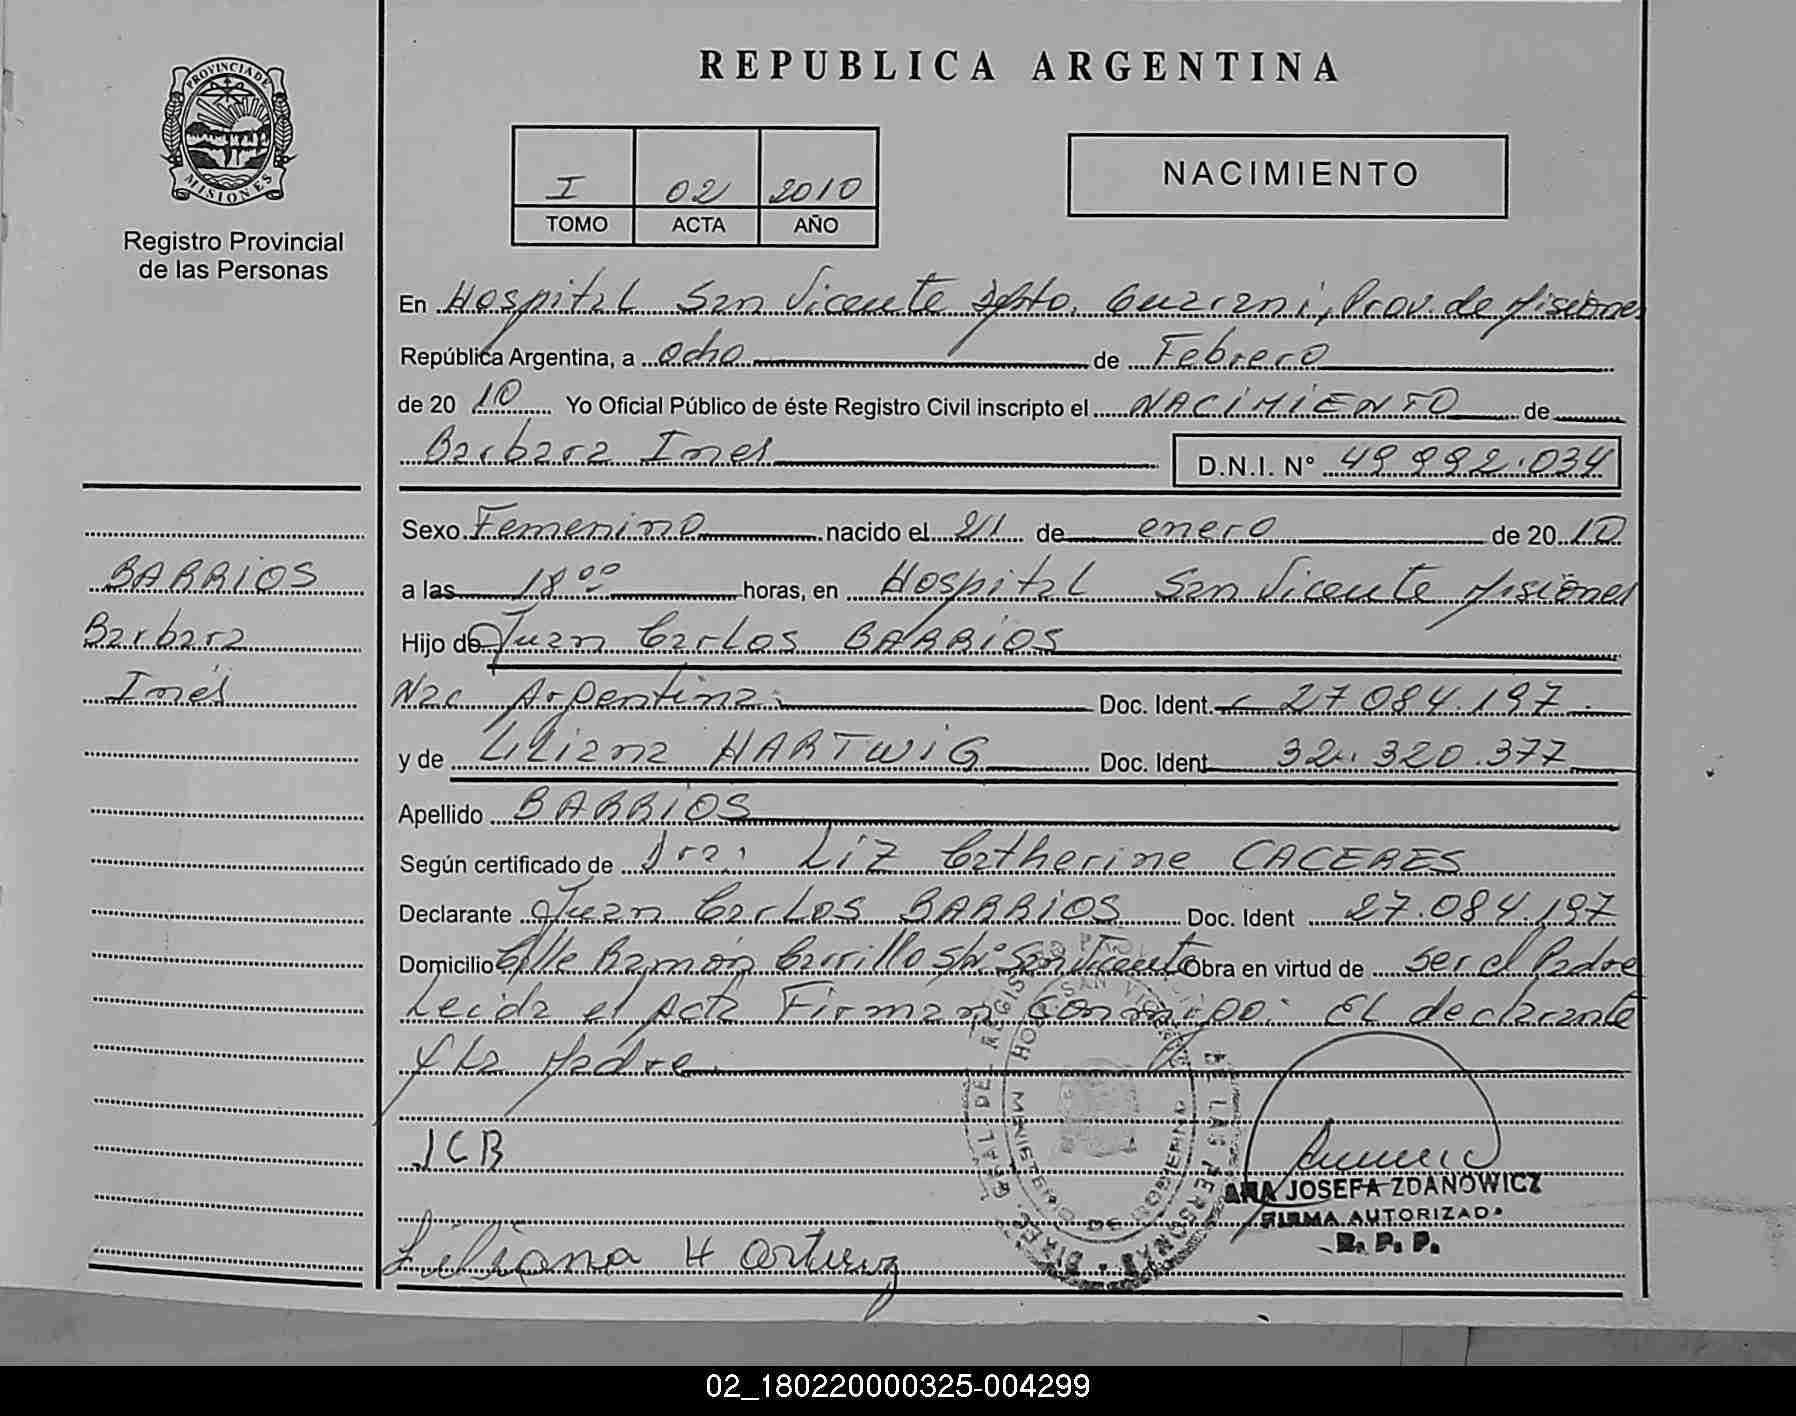 REPUBLICA ARGENTINA
PROVINCIA DE
MISIONES
Registro Provincial
de las Personas
I 02 2010
TOMO ACTA AÑO
NACIMIENTO
En Hospital San Vicente Dpto. Guarani, Prov. de Misiones
República Argentina, a ocho de Febrero
de 20 10 Yo Oficial Público de éste Registro Civil inscripto el NACIMIENTO de
Barbara Ines D.N.I. N° 49992.034
Sexo Femenino nacido el 21 de enero de 20 10
a las 18 00 horas, en Hospital San Vicente Misiones
Hijo de Juan Carlos BARRIOS
Nac Argentina. Doc. Ident. 27.084.197.
y de Liliana HARTWIG Doc. Ident 32.320.377
Apellido BARRIOS
Según certificado de Dra: Liz Catherine CACERES
Declarante Juan Carlos BARRIOS Doc. Ident 27.084.197
Domicilio Calle Ramón Carrillo S/Nº San Vicente Obra en virtud de ser el Padre
Leida el Acta Firman conmigo: EL declarante
y La Madre.
BARRIOS
Barbara
Inés
JCB
Liliana Hartwig
DIREC. GRAL. DEL REGISTRO PROVINCIAL DE LAS PERSONAS
HOSP. SAN VICENTE
MINISTERIO DE GOBIERNO
ANA JOSEFA ZDANOWICZ
FIRMA AUTORIZADA
R. P. P.
02_180220000325-004299